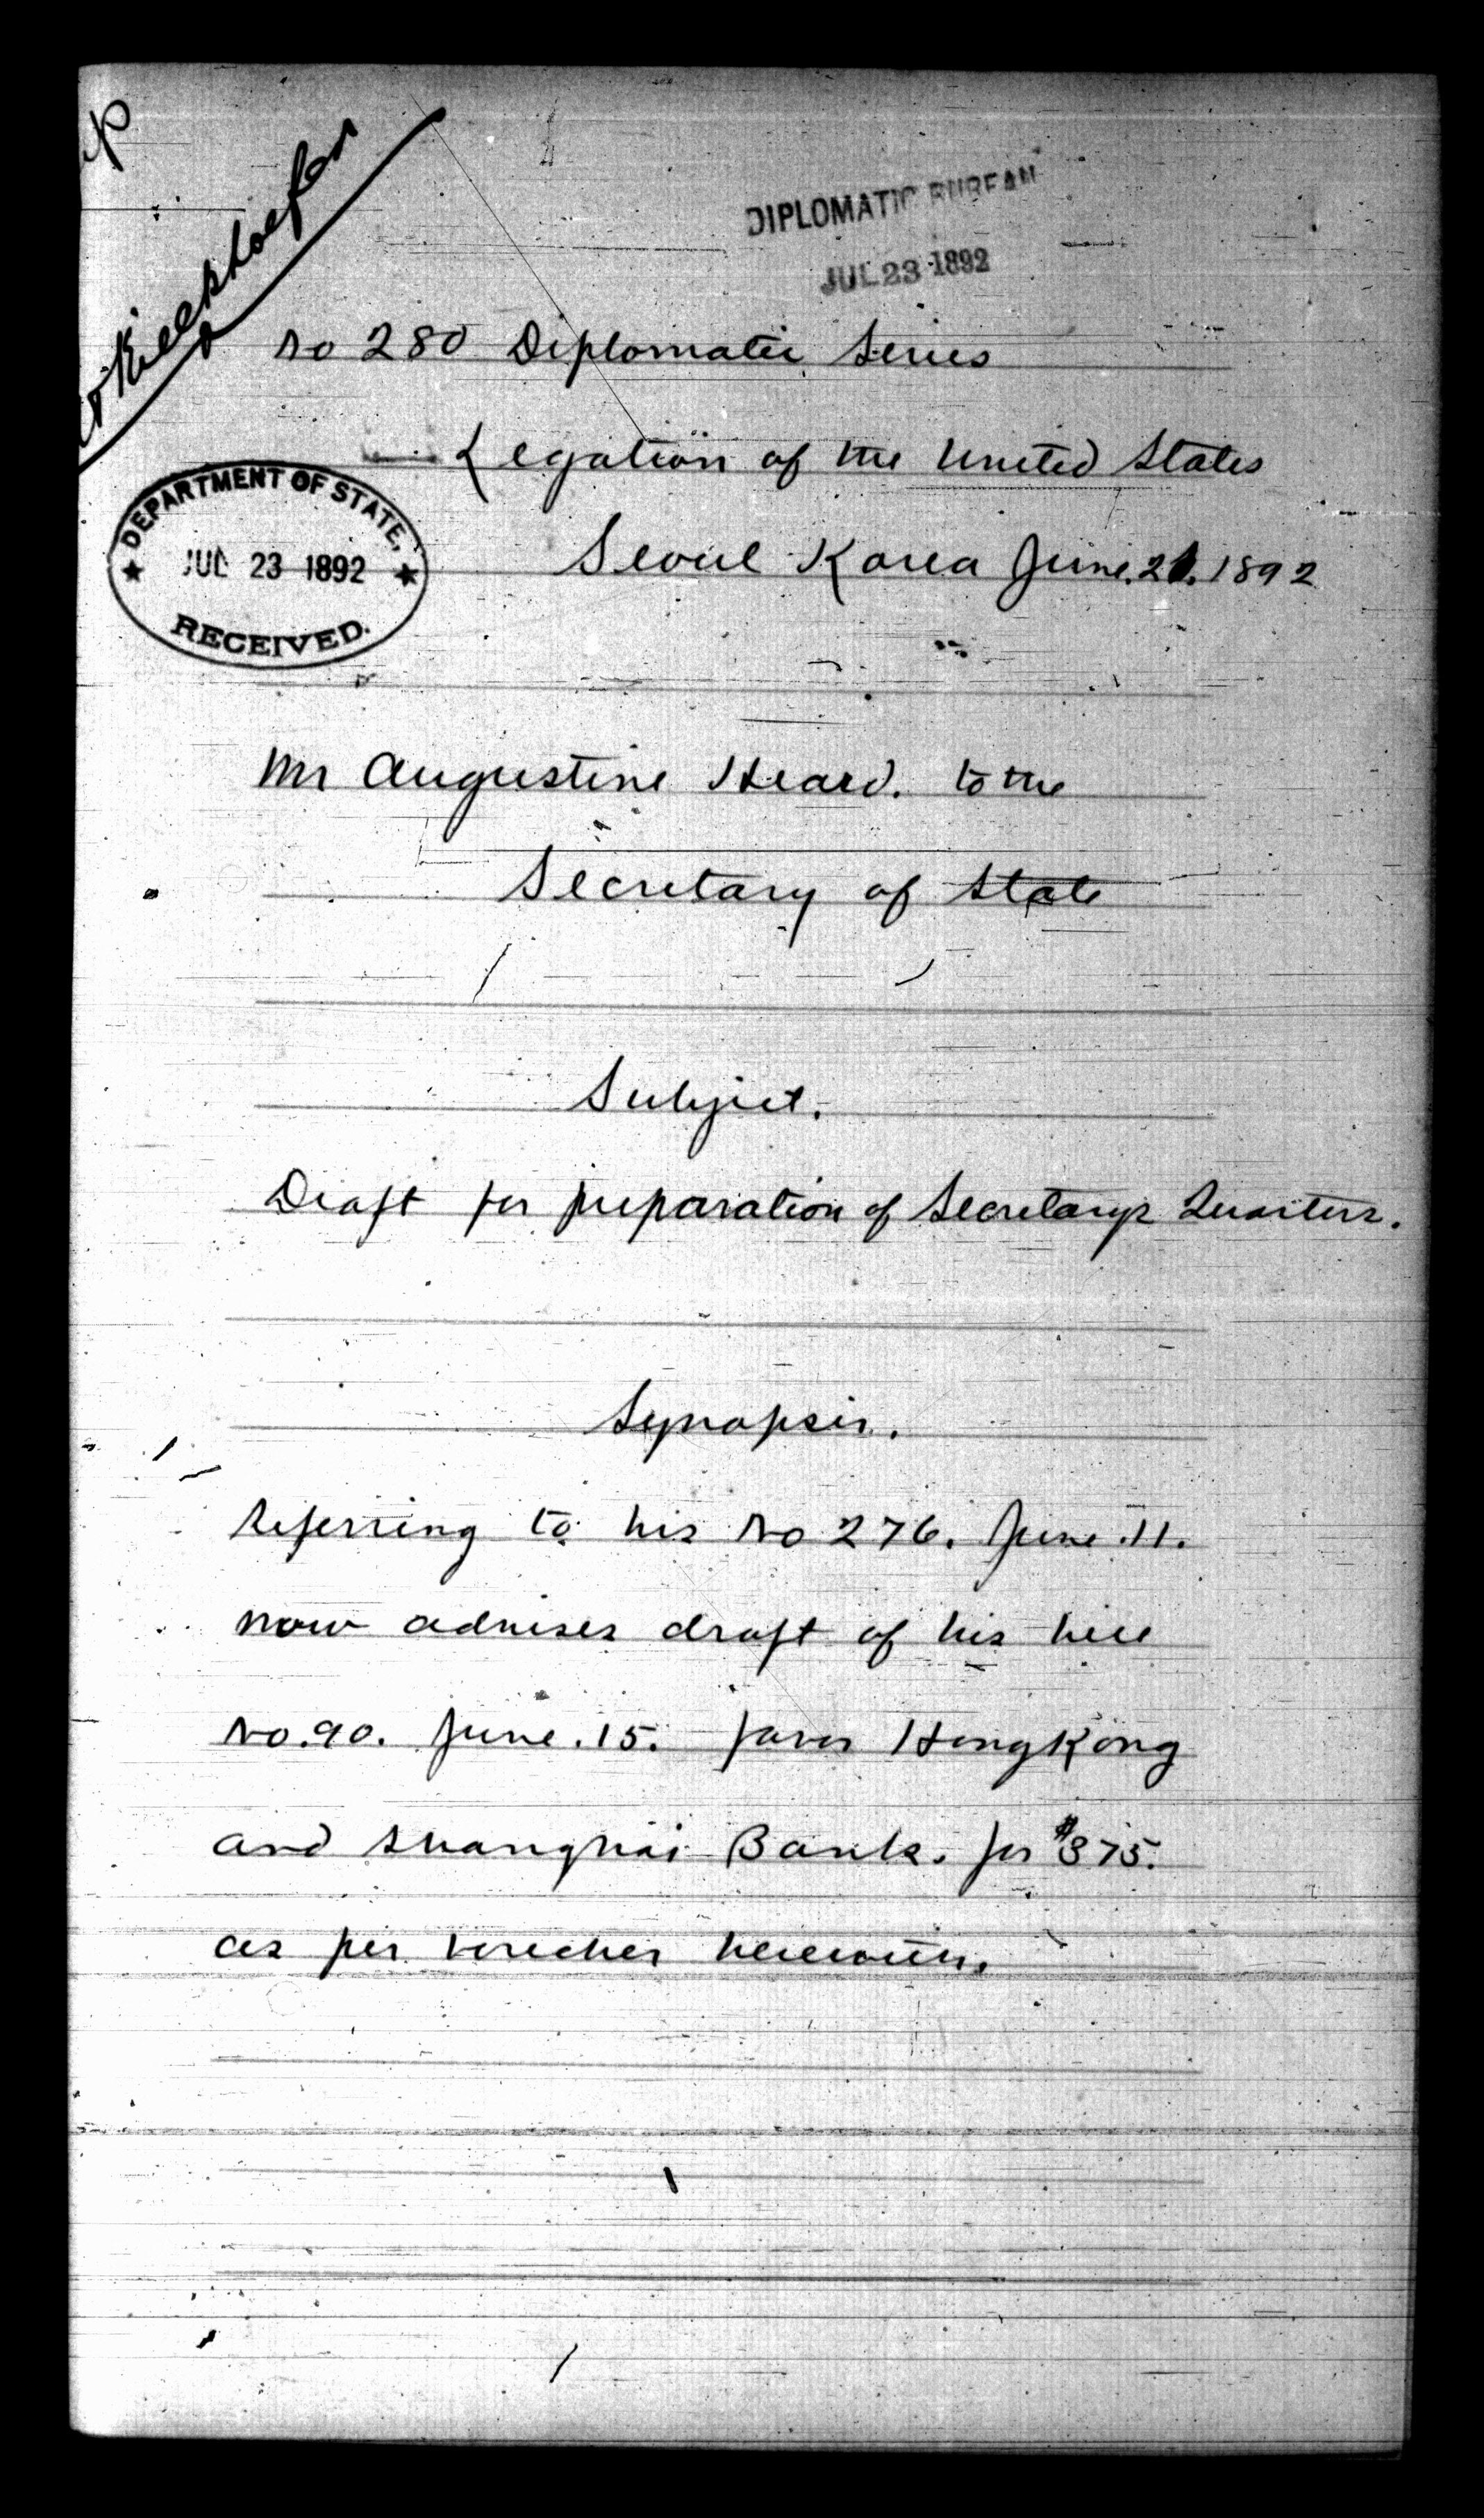 DIPLOMATIC BUREAU
JUL 23 1892
No 280 Diplomatic Series
Legation of the United States
DEPARTMENT OF STATE,
JUL 23 1892
RECEIVED.
Seoul Korea June. 21. 1892
Mr Augustine Heard. to the
Secretary of State
Subject.
Draft for preparation of Secretary's Quarters.
Synopsis.
Referring to his No 276. June. 11.
now advises draft of his here
No. 90. June. 15. favor HongKong
and Shanghai Bank. for $375.
as per voucher herewith.